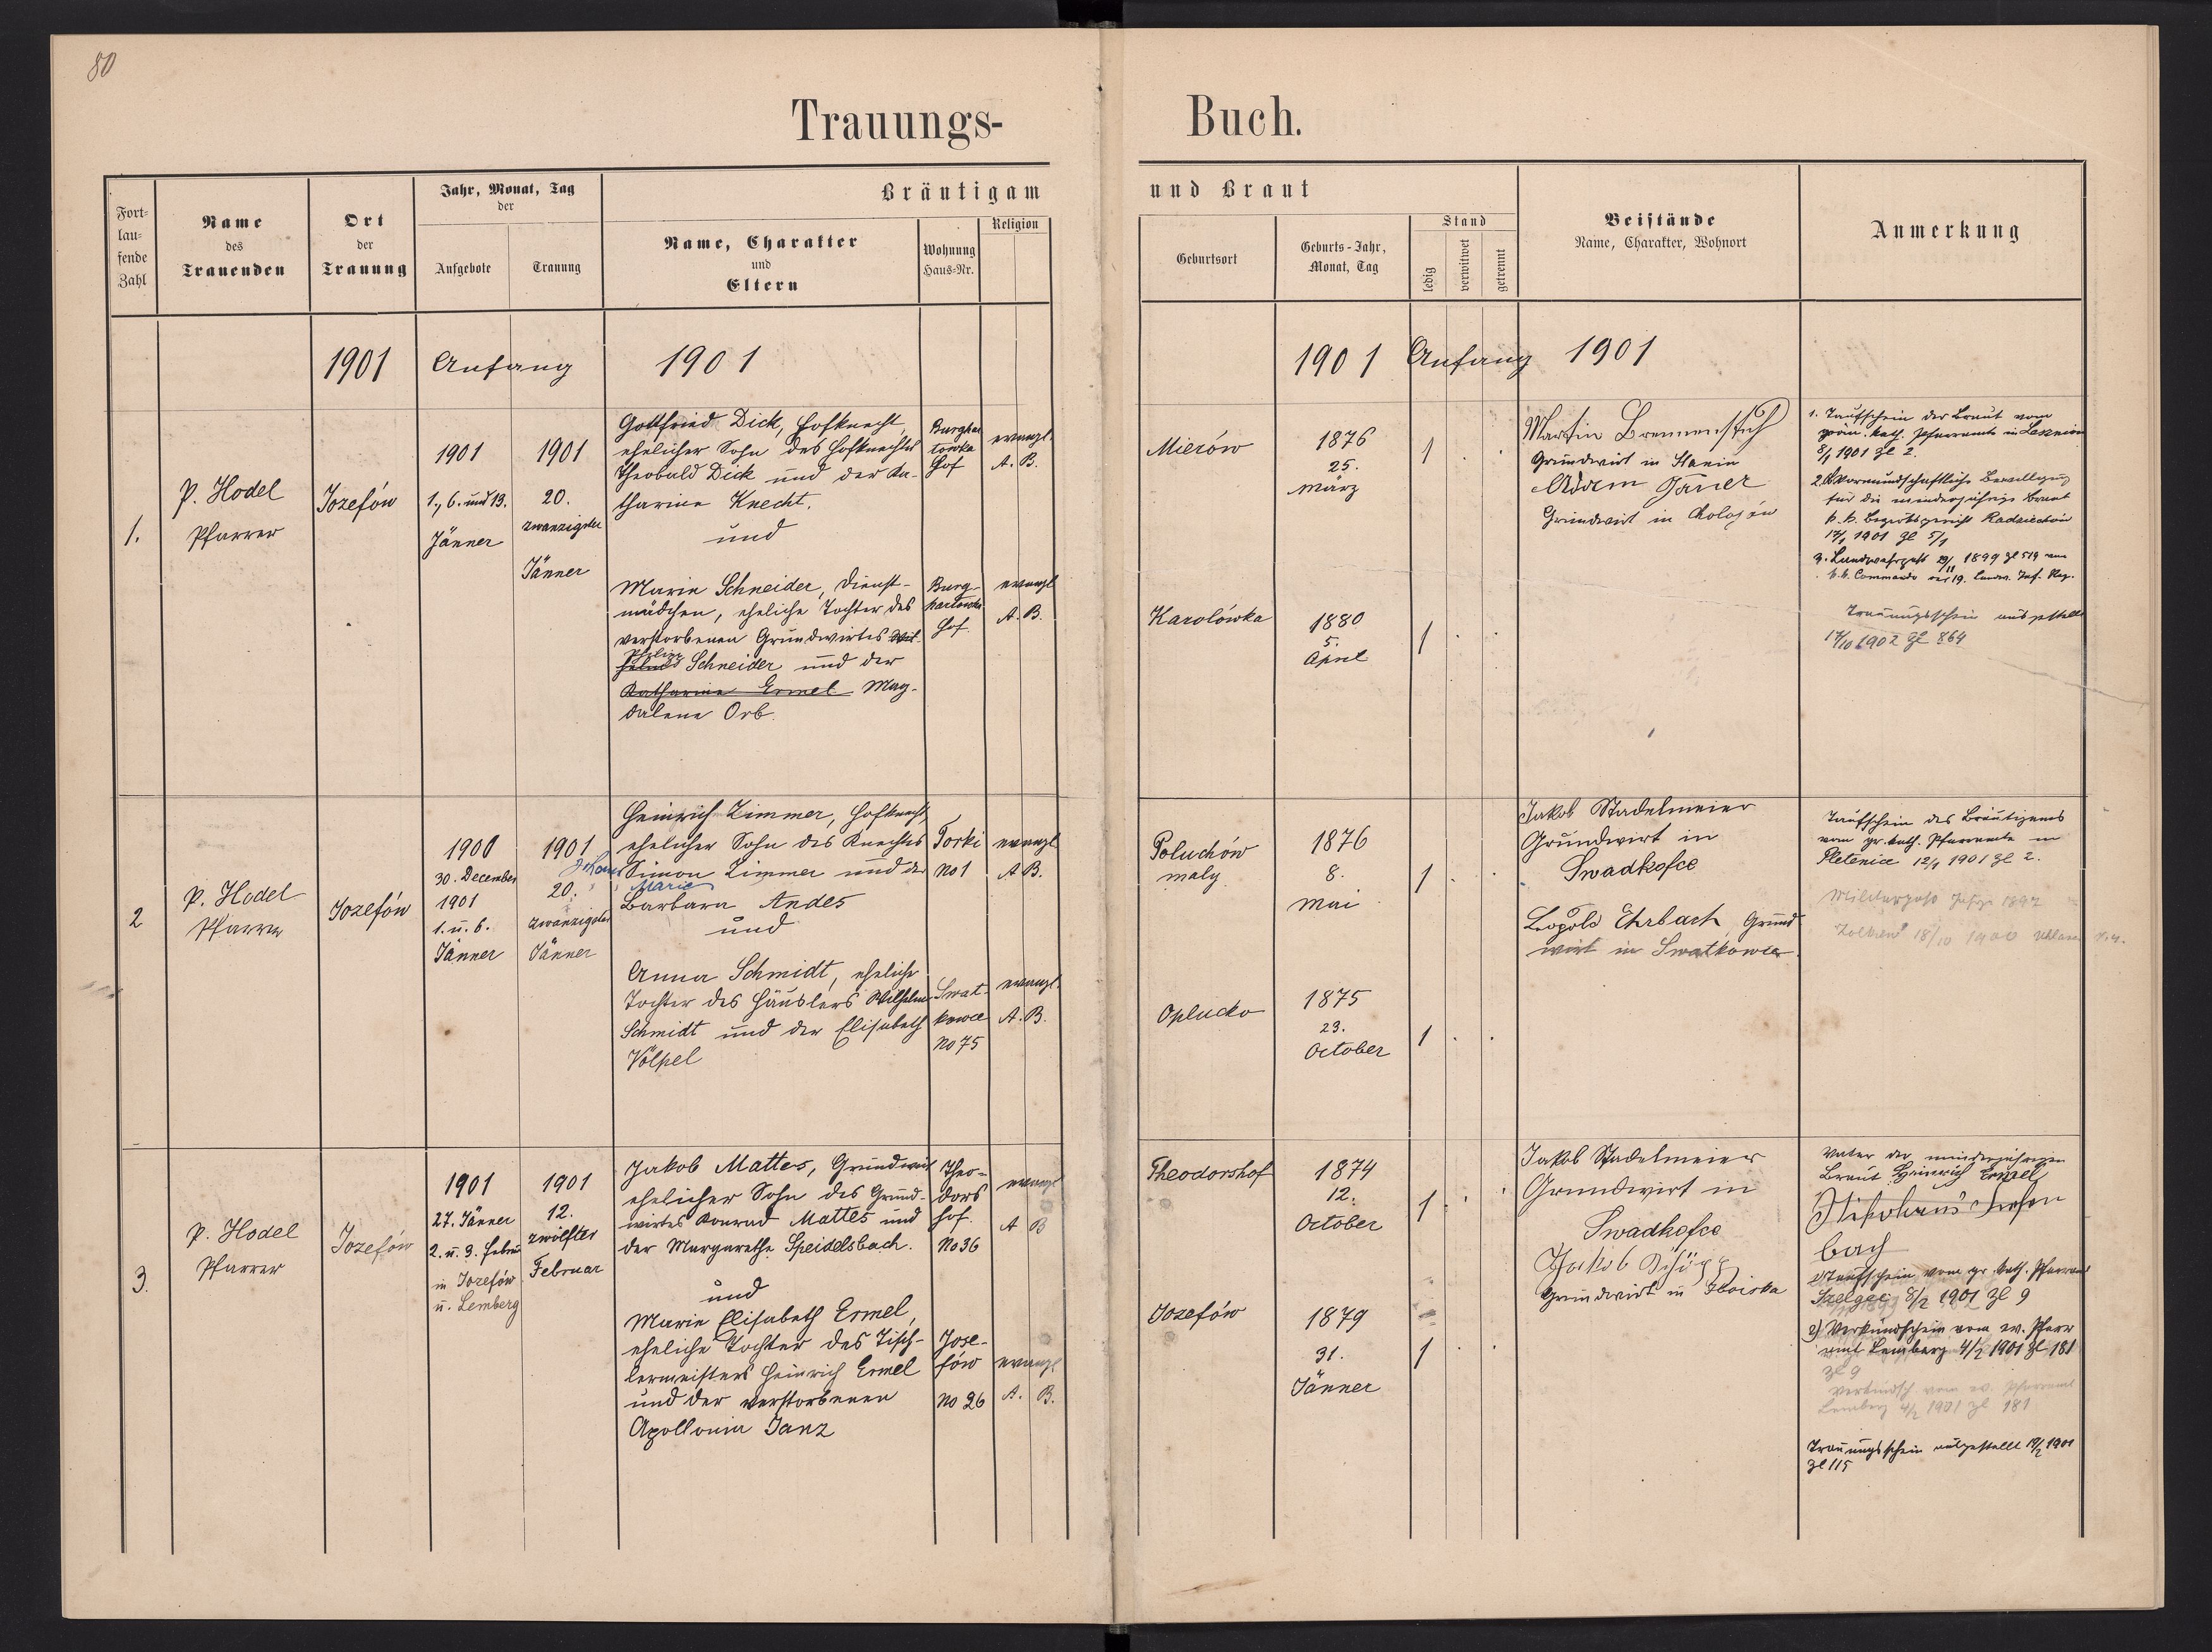 80
Trauungs-
Buch.
Fort-
lau-
fende
Zahl
Name
des
Trauenden
Ort
der
Trauung
Jahr, Monat, Tag
der
Aufgebote
Trauung
Bräutigam
Name, Charakter
und
Eltern
Wohnung
Haus-Nr.
Religion
und Braut
Geburtsort
Geburts-Jahr,
Monat, Tag
Stand
ledig
verwitwet
getrennt
Beistände
Name, Charakter, Wohnort
Anmerkung
1901
Anfang
1901
1901
Anfang
1901
1.
P. Hodel
Pfarrer
Jozefów
1901
1., 6. und 13.
Jänner
1901
20.
zwanzigster
Jänner
Gottfried Dick, Hofknecht,
ehelicher Sohn des Hofknechtes
Theobald Dick und der Ka-
tharine Knecht.
und
Burghar
towka
Hof
evangl.
A. B.
Marie Schneider, Dienst-
mädchen, eheliche Tochter des
verstorbenen Grundwirtes Wil-
Philipp
helms Schneider und der
Katharine Ermel Mag-
dalena Orb.
Burg-
hartowka
Hof
evangl
A. B.
Mierów
1876
25.
März
1
Karolówka
1880
5.
April
1
Martin Brennenstuh
Grundwirt in Stanin
Adam
Grundwirt in Cholojów
1. Taufschein der Braut vom
röm. kath. Pfarramte in Leszniow
8/1 1901 Zl 2.
2. Vormundschaftliche Bewilligung
für die minderjährige Braut
k. k. Bezirksgericht Radziechów
17/1 1901 Zl 5/1
3. Landwehrpaß 1899 Zl 519 vom
k. k. Commando des 19. Landw. Inf. Reg.
Trauungsschein ausgestellt
17/10 1902 Zl 864
2
P. Hodel
Pfarrer
Jozefów
1900
30. December
1901
1. u. 6.
Jänner
1901
20.
zwanzigster
Jänner
Heinrich Zimmer, Hofknecht,
ehelicher Sohn des Knechtes
Johann Simon Zimmer und der
Marie
Barbara Andes
und
Torki
No 1
evangl
A B.
Anna Schmidt, eheliche
Tochter des Häuslers Wilhelm
Schmidt und der Elisabeth
Völpel
Swat-
kowce
No 75
evangl.
A. B.
Poluchów
maly
1876
8.
Mai
1
Oplucko
1875
23.
October
1
Jakob Stadelmeier
Grundwirt in
Swadkofce
Leopold Ehrbach, Grund
wirt in Swatkowce
Taufschein des Bräutigams
vom gr. kath. Pfarramte in
Pletenice 12/1 1901 Zl 2.
Militärpaß
18/10 1900
3.
P. Hodel
Pfarrer
Jozefów
1901
27. Jänner
2. u. 3. Febru
in Jozefów
u. Lemberg
1901
12.
zwölfter
Februar
Jakob Mattes, Grundwirt
ehelicher Sohn des Grund-
wirtes Konrad Mattes und
der Margarethe Speidelsbach.
und
Theo-
dors
hof.
No 36
evangl
A B
Marie Elisabeth Ermel,
eheliche Tochter des Tisch-
lermeisters Heinrich Ermel
und der verstorbenen
Apollonia Janz
Jose-
fów
No 26
evangl
A. B.
Theodorshof
1874
12.
October
1
Jozefów
1879
31.
Jänner
1
Jakob Stadelmeier
Grundwirt in
Swadkofce
Jakob
Grundwirt in Zboiska
Vater der minderjährigen
Braut Heinrich Ermel
bach
1) Taufschein vom gr. kath. Pfarramt
8/2 1901 Zl 9
2) Verkündschein vom ev. Pfarr
amt Lemberg 4/2 1901 Zl 181
Zl 9
Verkündsch. vom ev. Pfarramt
Lemberg 4/2 1901 Zl 181
Trauungsschein ausgestellt 19/2 1901
Zl 115